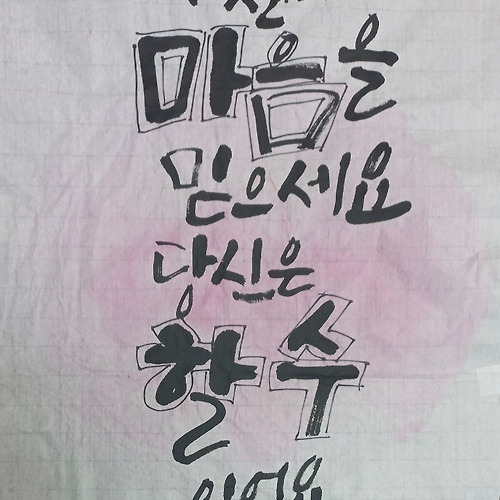 마음을
믿으세요
당신은
할 수
있어요